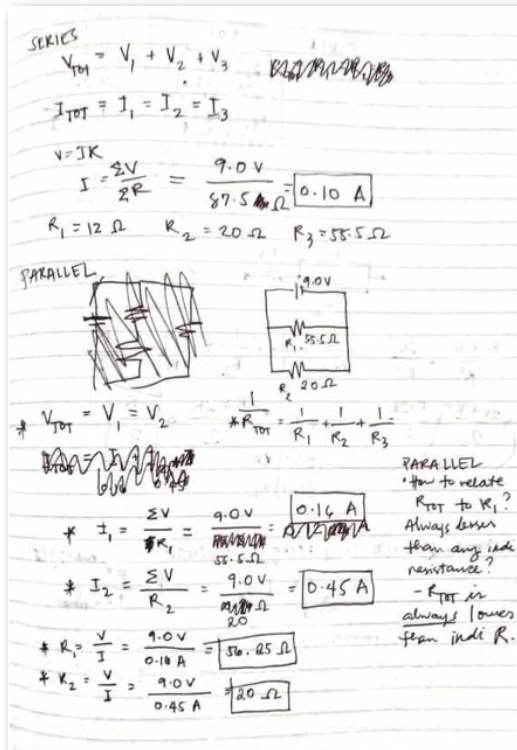 SERIES
V_TOT = V_1 + V_2 + V_3
I_TOT = I_1 = I_2 = I_3
V=IR
I = ΣV/ΣR = 9.0 V/87.5 Ω = 0.10 A
R_1 = 12 Ω R_2 = 20 Ω R_3 = 55.5 Ω
PARALLEL
9.0V
R_1 55.5Ω
R_2 20Ω
* V_TOT = V_1 = V_2
* 1/R_TOT = 1/R_1 + 1/R_2 + 1/R_3
* I_1 = ΣV/R_1 = 9.0 V/55.5 Ω = 0.16 A
* I_2 = ΣV/R_2 = 9.0 V/20 Ω = 0.45 A
* R_1 = V/I = 9.0 V/0.16 A = 56.25 Ω
* R_2 = V/I = 9.0 V/0.45 A = 20 Ω
PARALLEL
• How to relate
R_TOT to R_1?
Always lesser
than any indi
resistance?
- R_TOT is
always lower
than indi R.